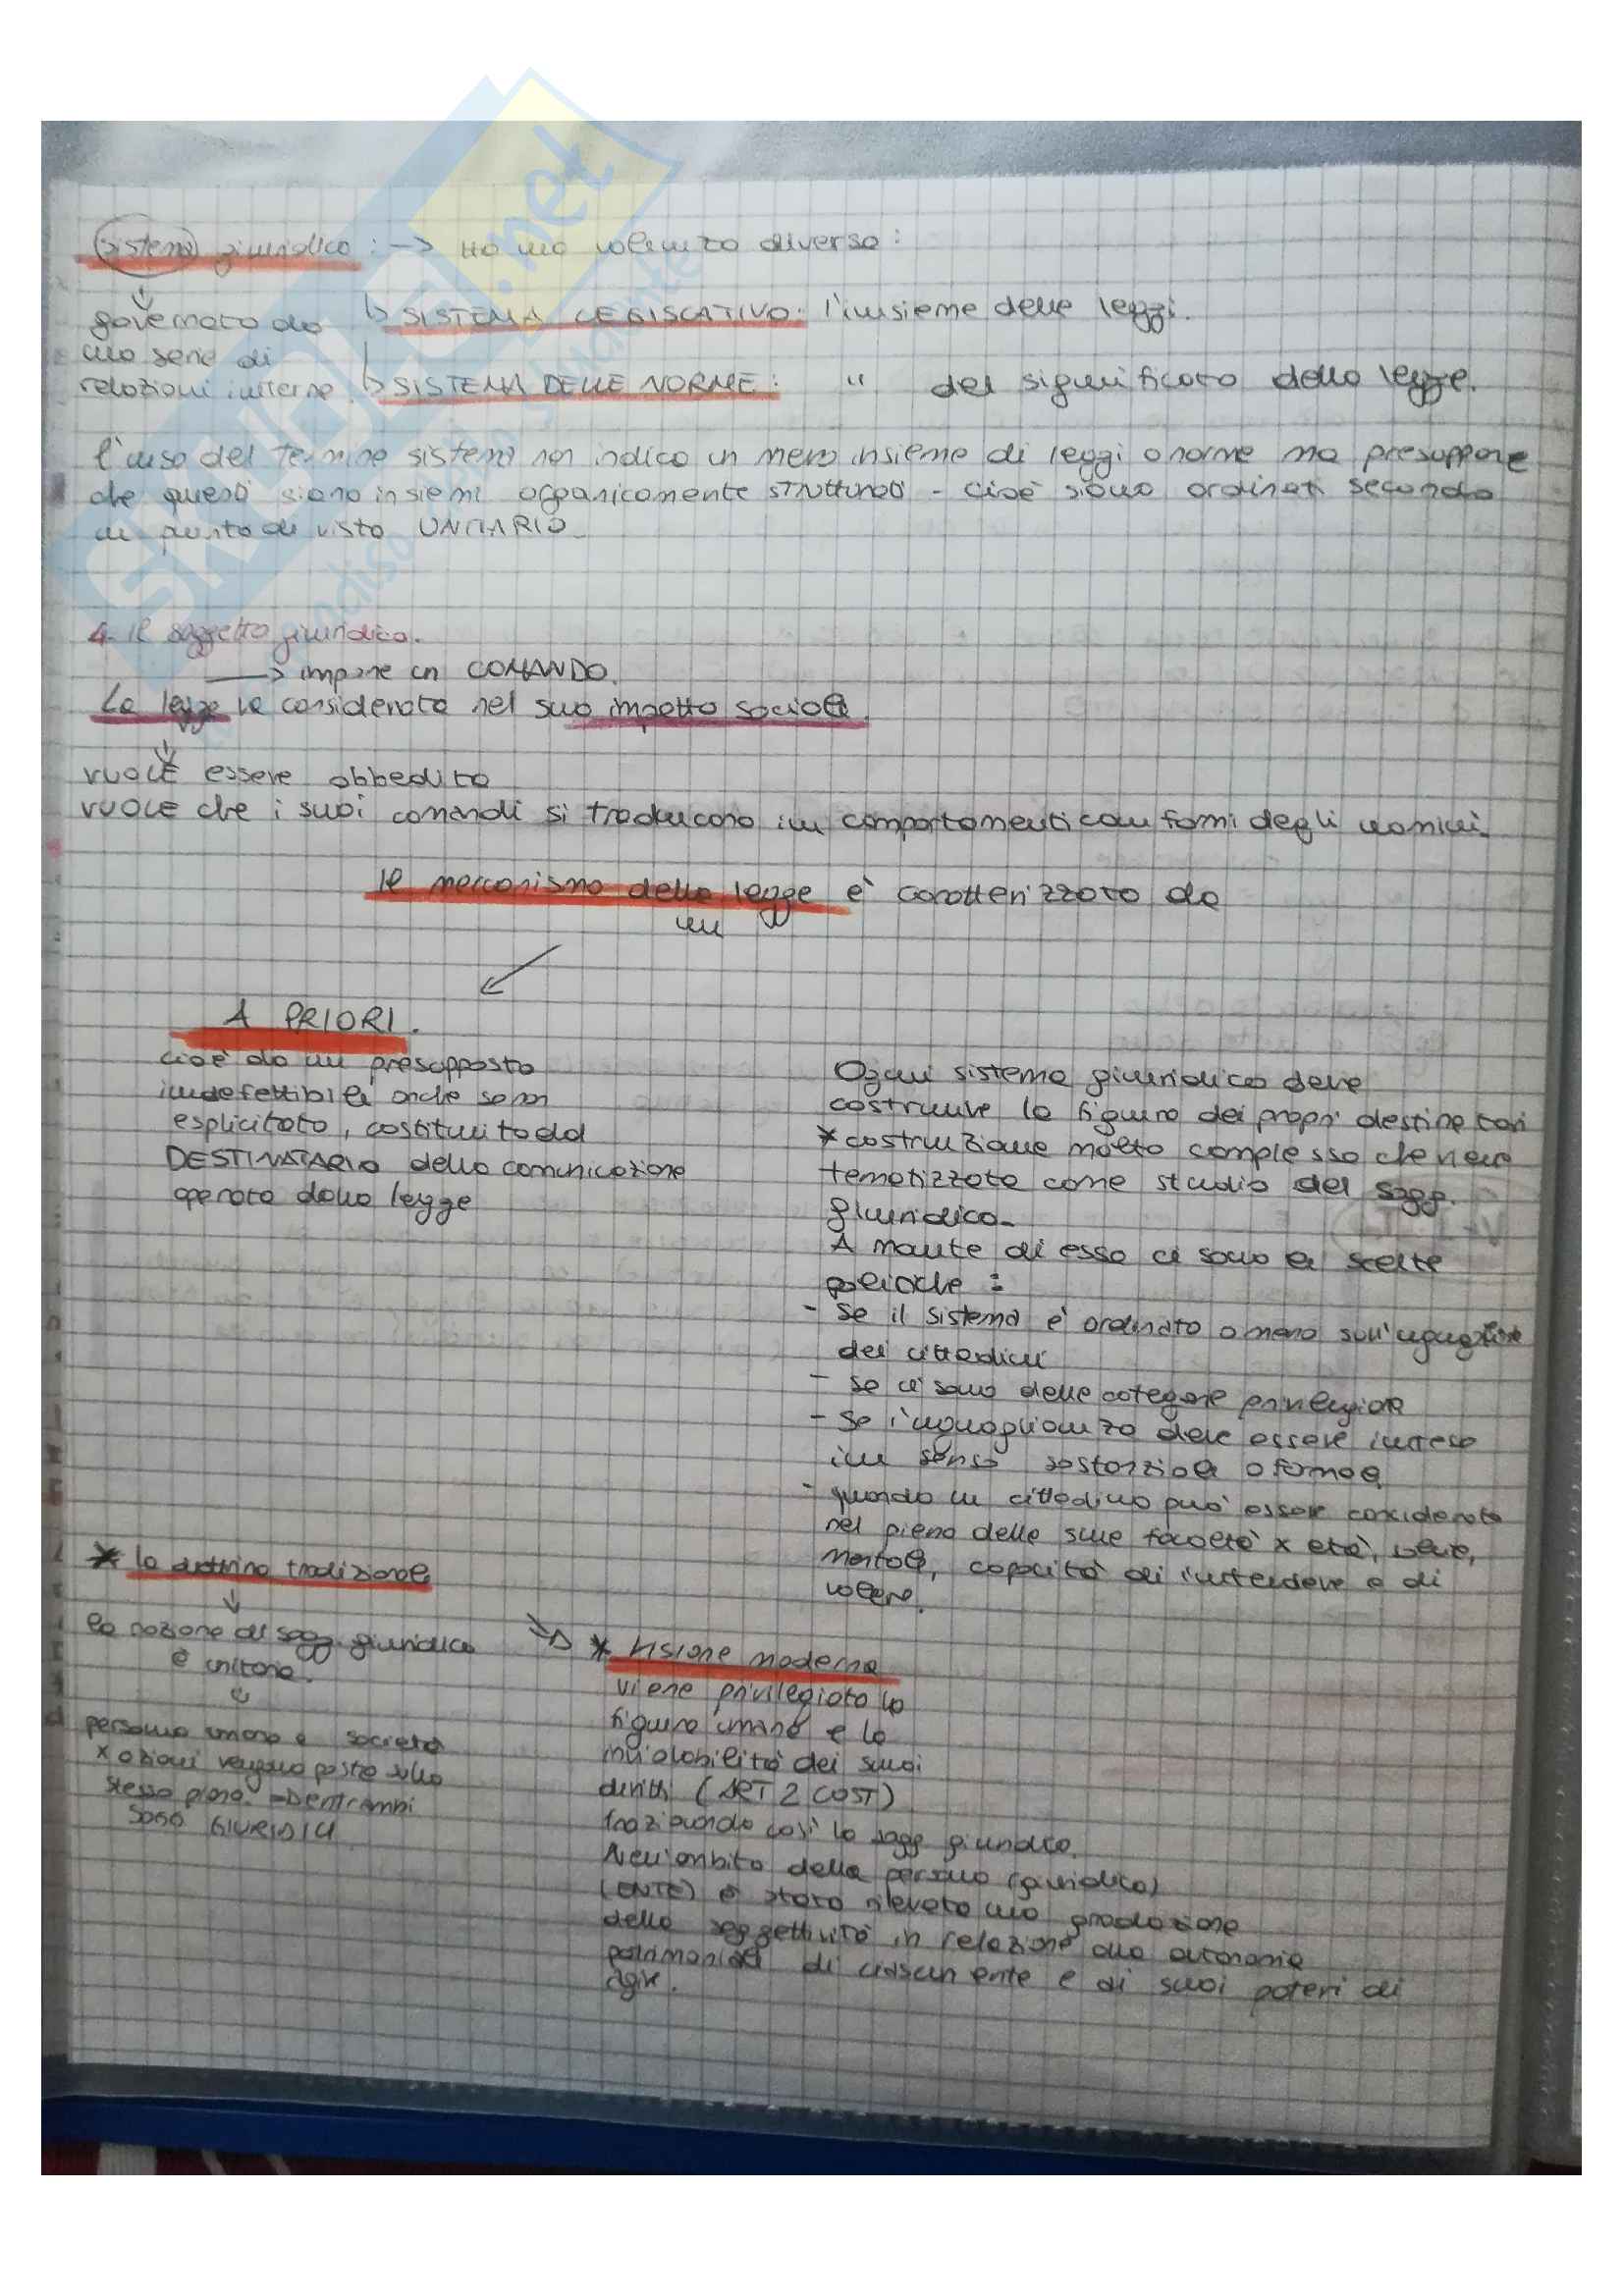 sistema giuridico : -> Ha una valenza diversa :
governato da
una serie di
relazioni interne
↳ SISTEMA LEGISLATIVO: l'insieme delle leggi.
↳ SISTEMA DELLE NORME: " del significato della legge.
l'uso del termine sistema non indica un mero insieme di leggi o norme ma presuppone
che questi siano insiemi organicamente strutturati - cioè siano ordinati secondo
un punto di vista UNITARIO.
4. Il soggetto giuridico.
-> impone un COMANDO.
La legge va considerata nel suo impatto sociale.
VUOLE essere obbedita
VUOLE che i suoi comandi si traducano in comportamenti conformi degli uomini.
Il meccanismo della legge è caratterizzato da
un
A PRIORI.
cioè da un presupposto
indefettibile anche se non
esplicitato, costituito dal
DESTINATARIO della comunicazione
operata dalla legge
Ogni sistema giuridico deve
costruire la figura dei propri destinatari
* costruzione molto complessa che viene
tematizzata come studio del sogg.
giuridico.
A monte di esso ci sono le scelte
politiche :
- se il sistema è ordinato o meno sull'uguaglianza
dei cittadini
- se ci sono delle categorie privilegiate
- se l'uguaglianza deve essere intesa
in senso sostanziale o formale
- quando un cittadino può essere considerato
nel pieno delle sue facoltà x età,
mentale, capacità di intendere e di
volere.
* la dottrina tradizionale
la nozione di sogg. giuridico
è unitaria.
persona umana e società
x azioni vengono poste sullo
stesso piano. => entrambi
sogg GIURIDICI
* visione moderna
viene privilegiata la
figura umana e la
inviolabilità dei suoi
diritti (ART 2 COST)
frazionando così la sogg giuridica.
Nell'ambito della persona (giuridica)
(ENTE) è stata rilevata una gradazione
della soggettività in relazione alla autonomia
patrimoniale di ciascun ente e di suoi poteri di
agire.
SKUOLA.net